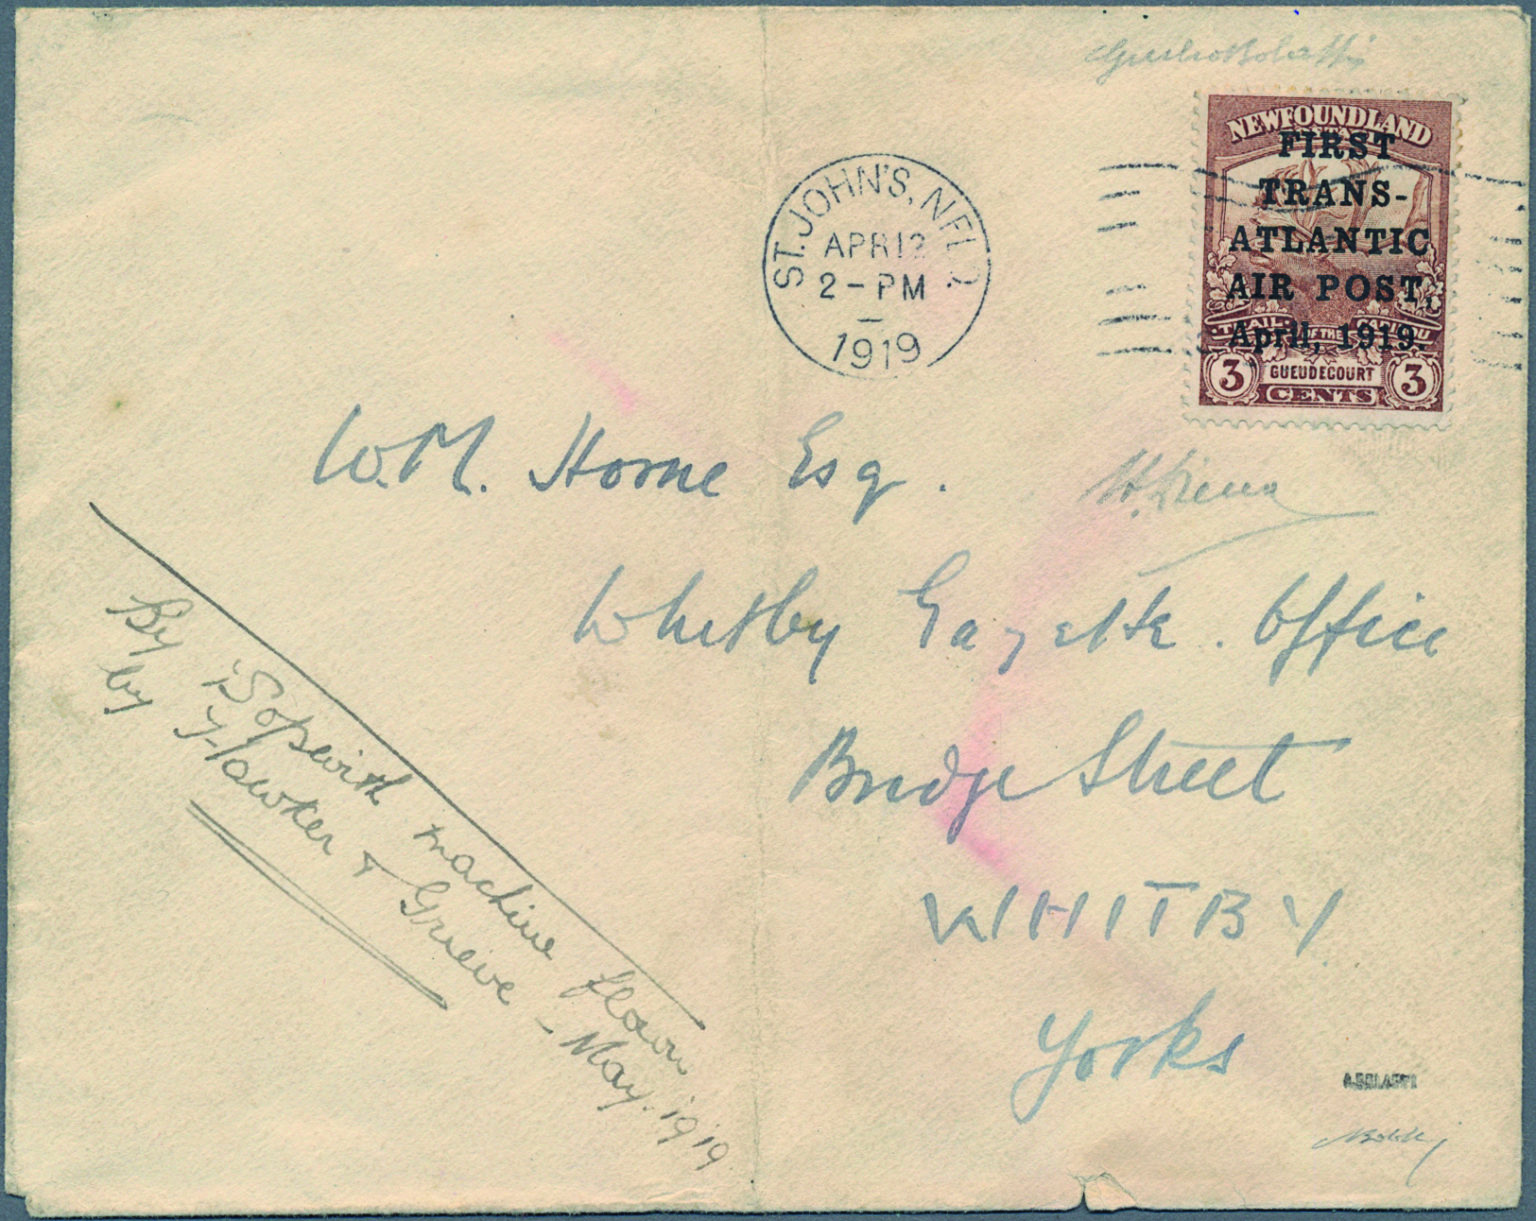 NEWFOUNDLAND
FIRST
TRANS-
ATLANTIC
AIR POST,
April, 1919.
TRAIL OF THE CARIBOU
3 GUEUDECOURT 3
CENTS
ST. JOHN'S, NFLD.
APR 12
2 - PM
1919
W.M. Horne Esq.
Whitby Gazette. Office
Bridge Street
WHITBY.
Yorks
By Sopwith machine flown
by Hawker & Grieve - May. 1919
A.BOLAFFI